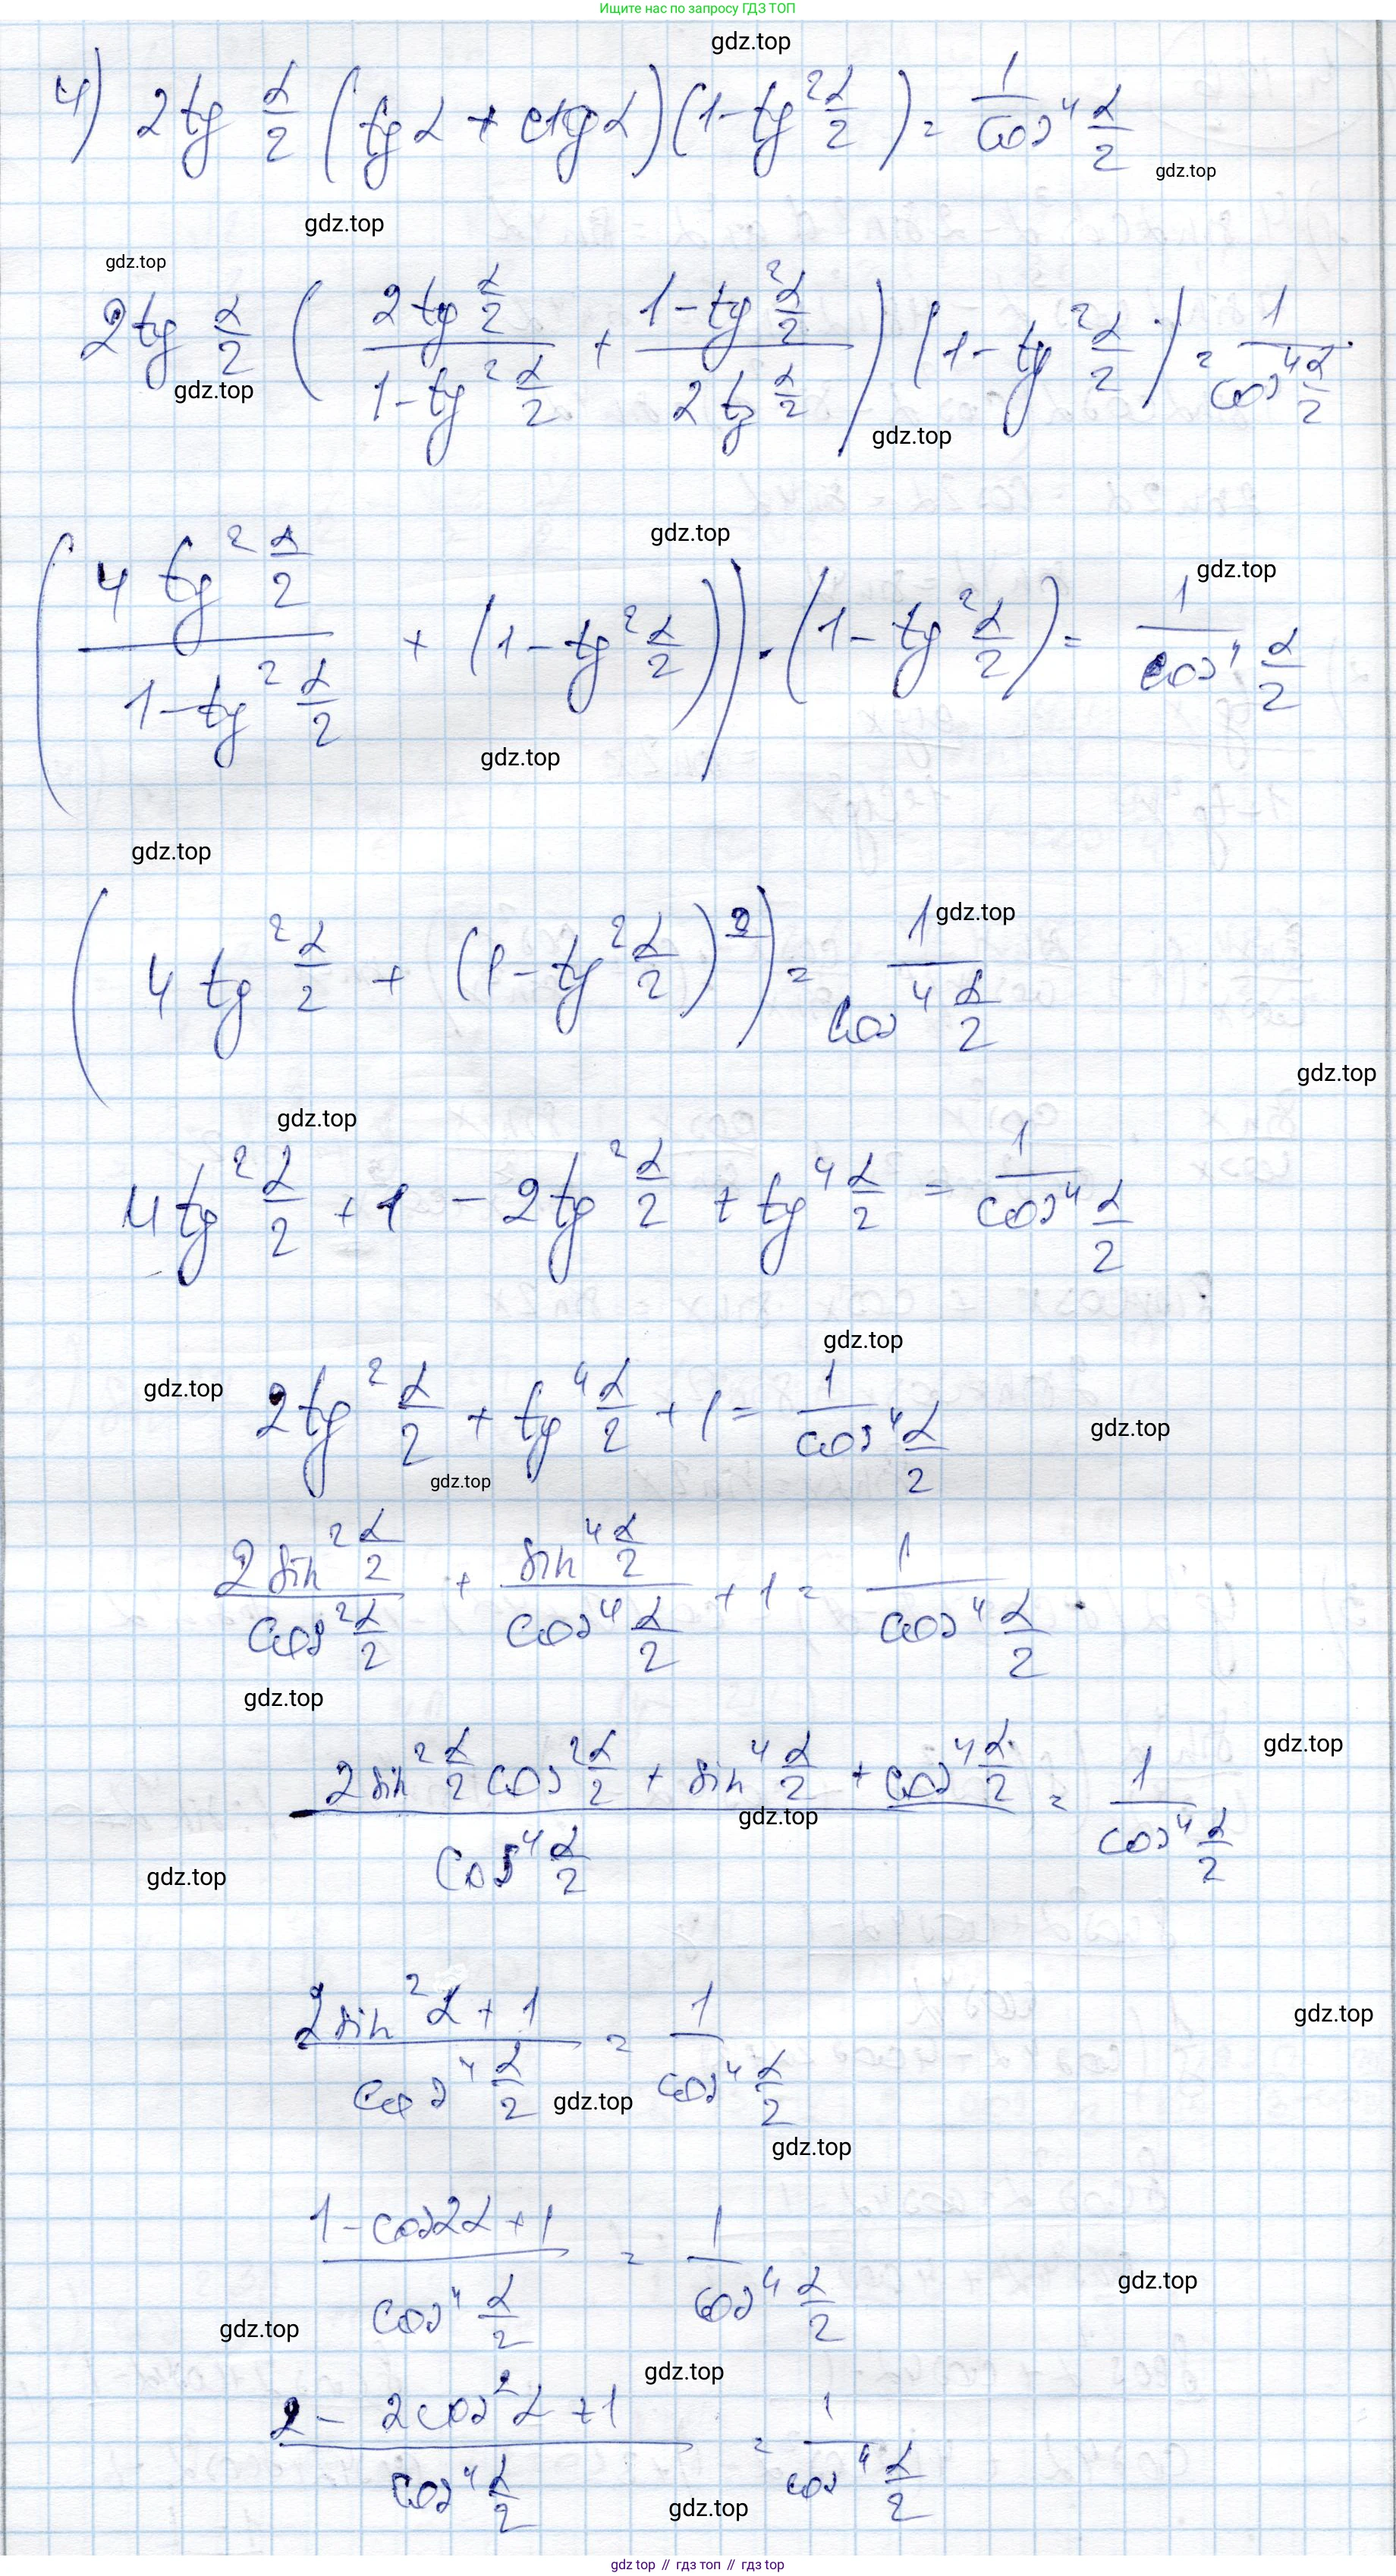 Ищите нас по запросу ГДЗ ТОП
gdz.top
4) 2tg α/2 (tgα + ctgα)(1-tg² α/2) = 1/cos⁴ α/2
gdz.top
gdz.top
gdz.top
2tg α/2 ( 2tg α/2 / 1-tg² α/2 + 1-tg² α/2 / 2tg α/2 ) (1-tg² α/2) = 1/cos⁴ α/2
gdz.top
gdz.top
gdz.top
gdz.top
( 4 tg² α/2 / 1-tg² α/2 + (1-tg² α/2)) · (1-tg² α/2) = 1/cos⁴ α/2
gdz.top
gdz.top
gdz.top
( 4 tg² α/2 + (1-tg² α/2)² ) = 1/cos⁴ α/2
gdz.top
gdz.top
4tg² α/2 + 1 - 2tg² α/2 + tg⁴ α/2 = 1/cos⁴ α/2
gdz.top
gdz.top
2tg² α/2 + tg⁴ α/2 + 1 = 1/cos⁴ α/2
gdz.top
gdz.top
2sin² α/2 / cos² α/2 + sin⁴ α/2 / cos⁴ α/2 + 1 = 1/cos⁴ α/2
gdz.top
gdz.top
2sin² α/2 cos² α/2 + sin⁴ α/2 + cos⁴ α/2 / cos⁴ α/2 = 1/cos⁴ α/2
gdz.top
gdz.top
gdz.top
2sin²α + 1 / cos⁴ α/2 = 1/cos⁴ α/2
gdz.top
gdz.top
1-cos2α+1 / cos⁴ α/2 = 1/cos⁴ α/2
gdz.top
gdz.top
gdz.top
2 - 2cos²α + 1 / cos⁴ α/2 = 1/cos⁴ α/2
gdz.top
gdz.top // гдз топ // gdz top